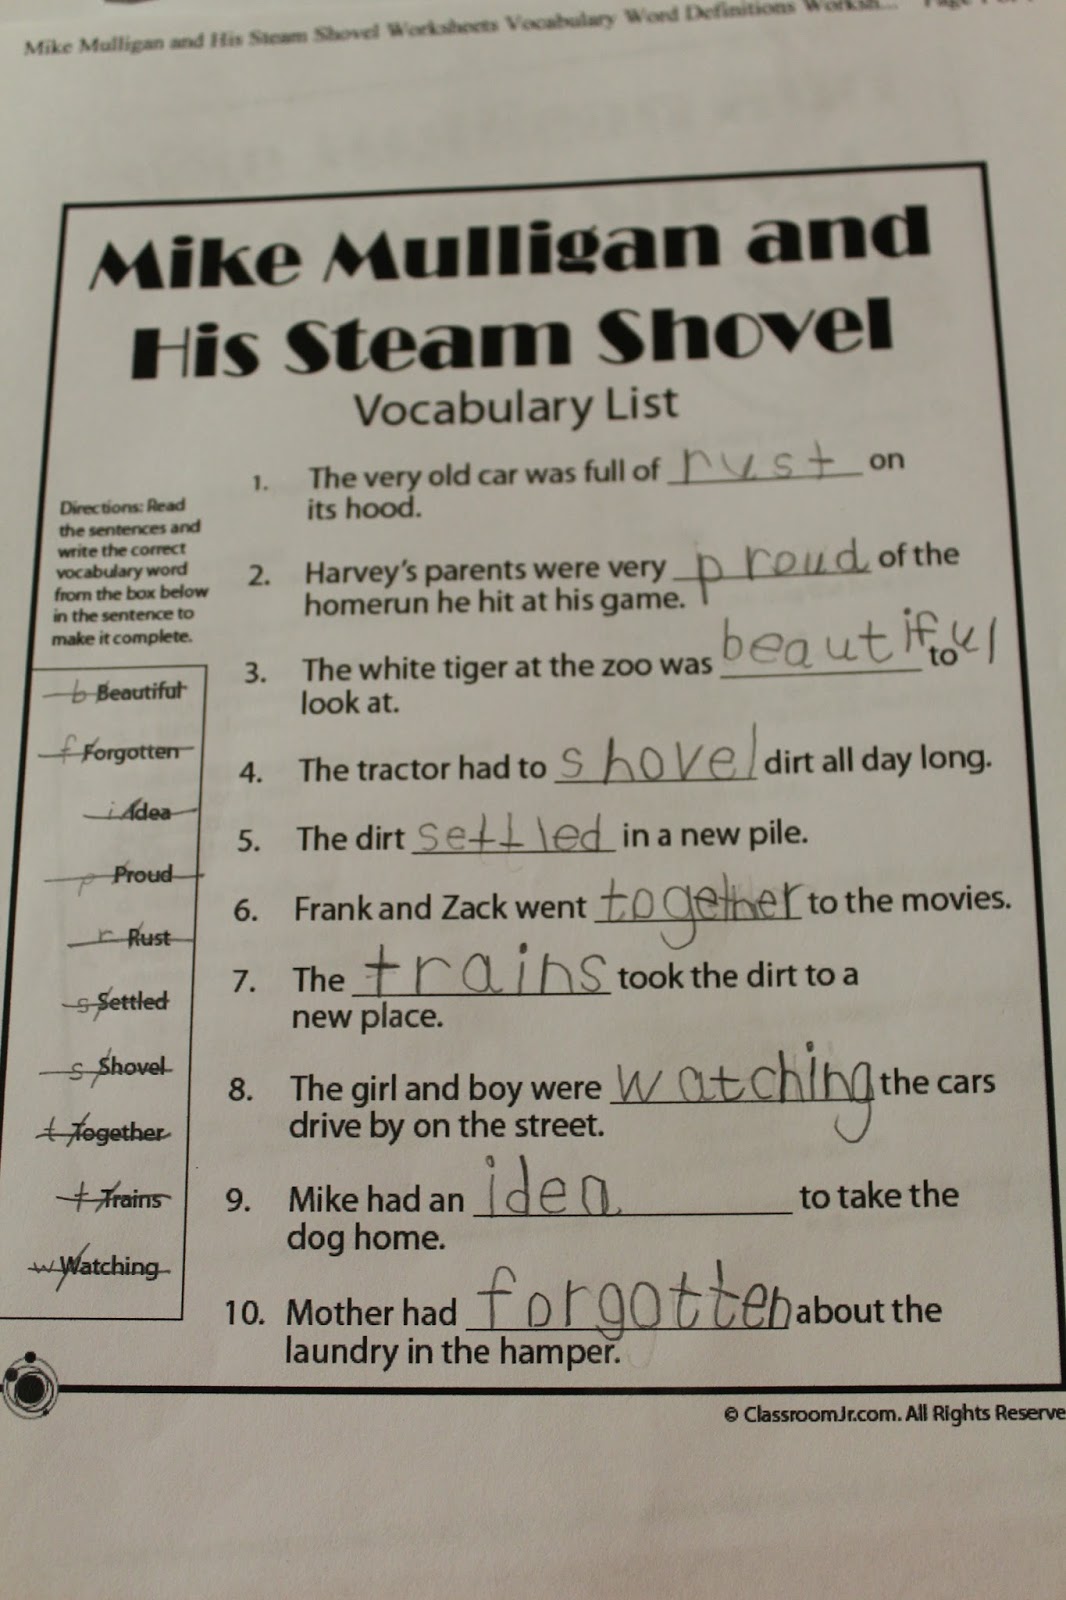 Mike Mulligan and His Steam Shovel Worksheets Vocabulary Word Definitions Worksh... Page
Mike Mulligan and
His Steam Shovel
Vocabulary List
Directions: Read
the sentences and
write the correct
vocabulary word
from the box below
in the sentence to
make it complete.
b Beautiful
f Forgotten
i Idea
p Proud
r Rust
s Settled
s Shovel
t Together
t Trains
w Watching
1. The very old car was full of rust on
its hood.
2. Harvey's parents were very proud of the
homerun he hit at his game.
3. The white tiger at the zoo was beautiful to
look at.
4. The tractor had to shovel dirt all day long.
5. The dirt settled in a new pile.
6. Frank and Zack went together to the movies.
7. The trains took the dirt to a
new place.
8. The girl and boy were watching the cars
drive by on the street.
9. Mike had an idea to take the
dog home.
10. Mother had forgotten about the
laundry in the hamper.
© ClassroomJr.com. All Rights Reserve